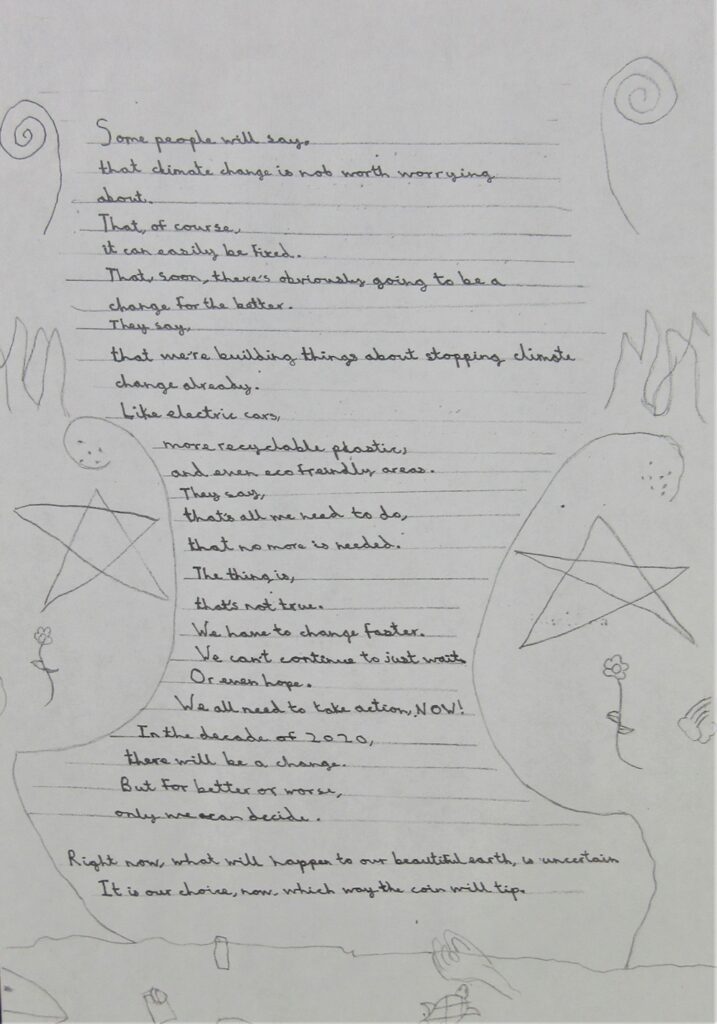 Some people will say,
that climate change is not worth worrying
about.
That, of course,
it can easily be fixed.
That, soon, there's obviously going to be a
change for the better.
They say,
that we're building things about stopping climate
change already.
Like electric cars,
more recyclable plastic,
and even eco freindly areas.
They say,
that's all we need to do,
that no more is needed.
The thing is,
that's not true.
We have to change faster.
We can't continue to just wait.
Or even hope.
We all need to take action, NOW!
In the decade of 2020,
there will be a change.
But for better or worse,
only we can decide.
Right now, what will happen to our beautiful earth, is uncertain
It is our choice, now, which way the coin will tip.